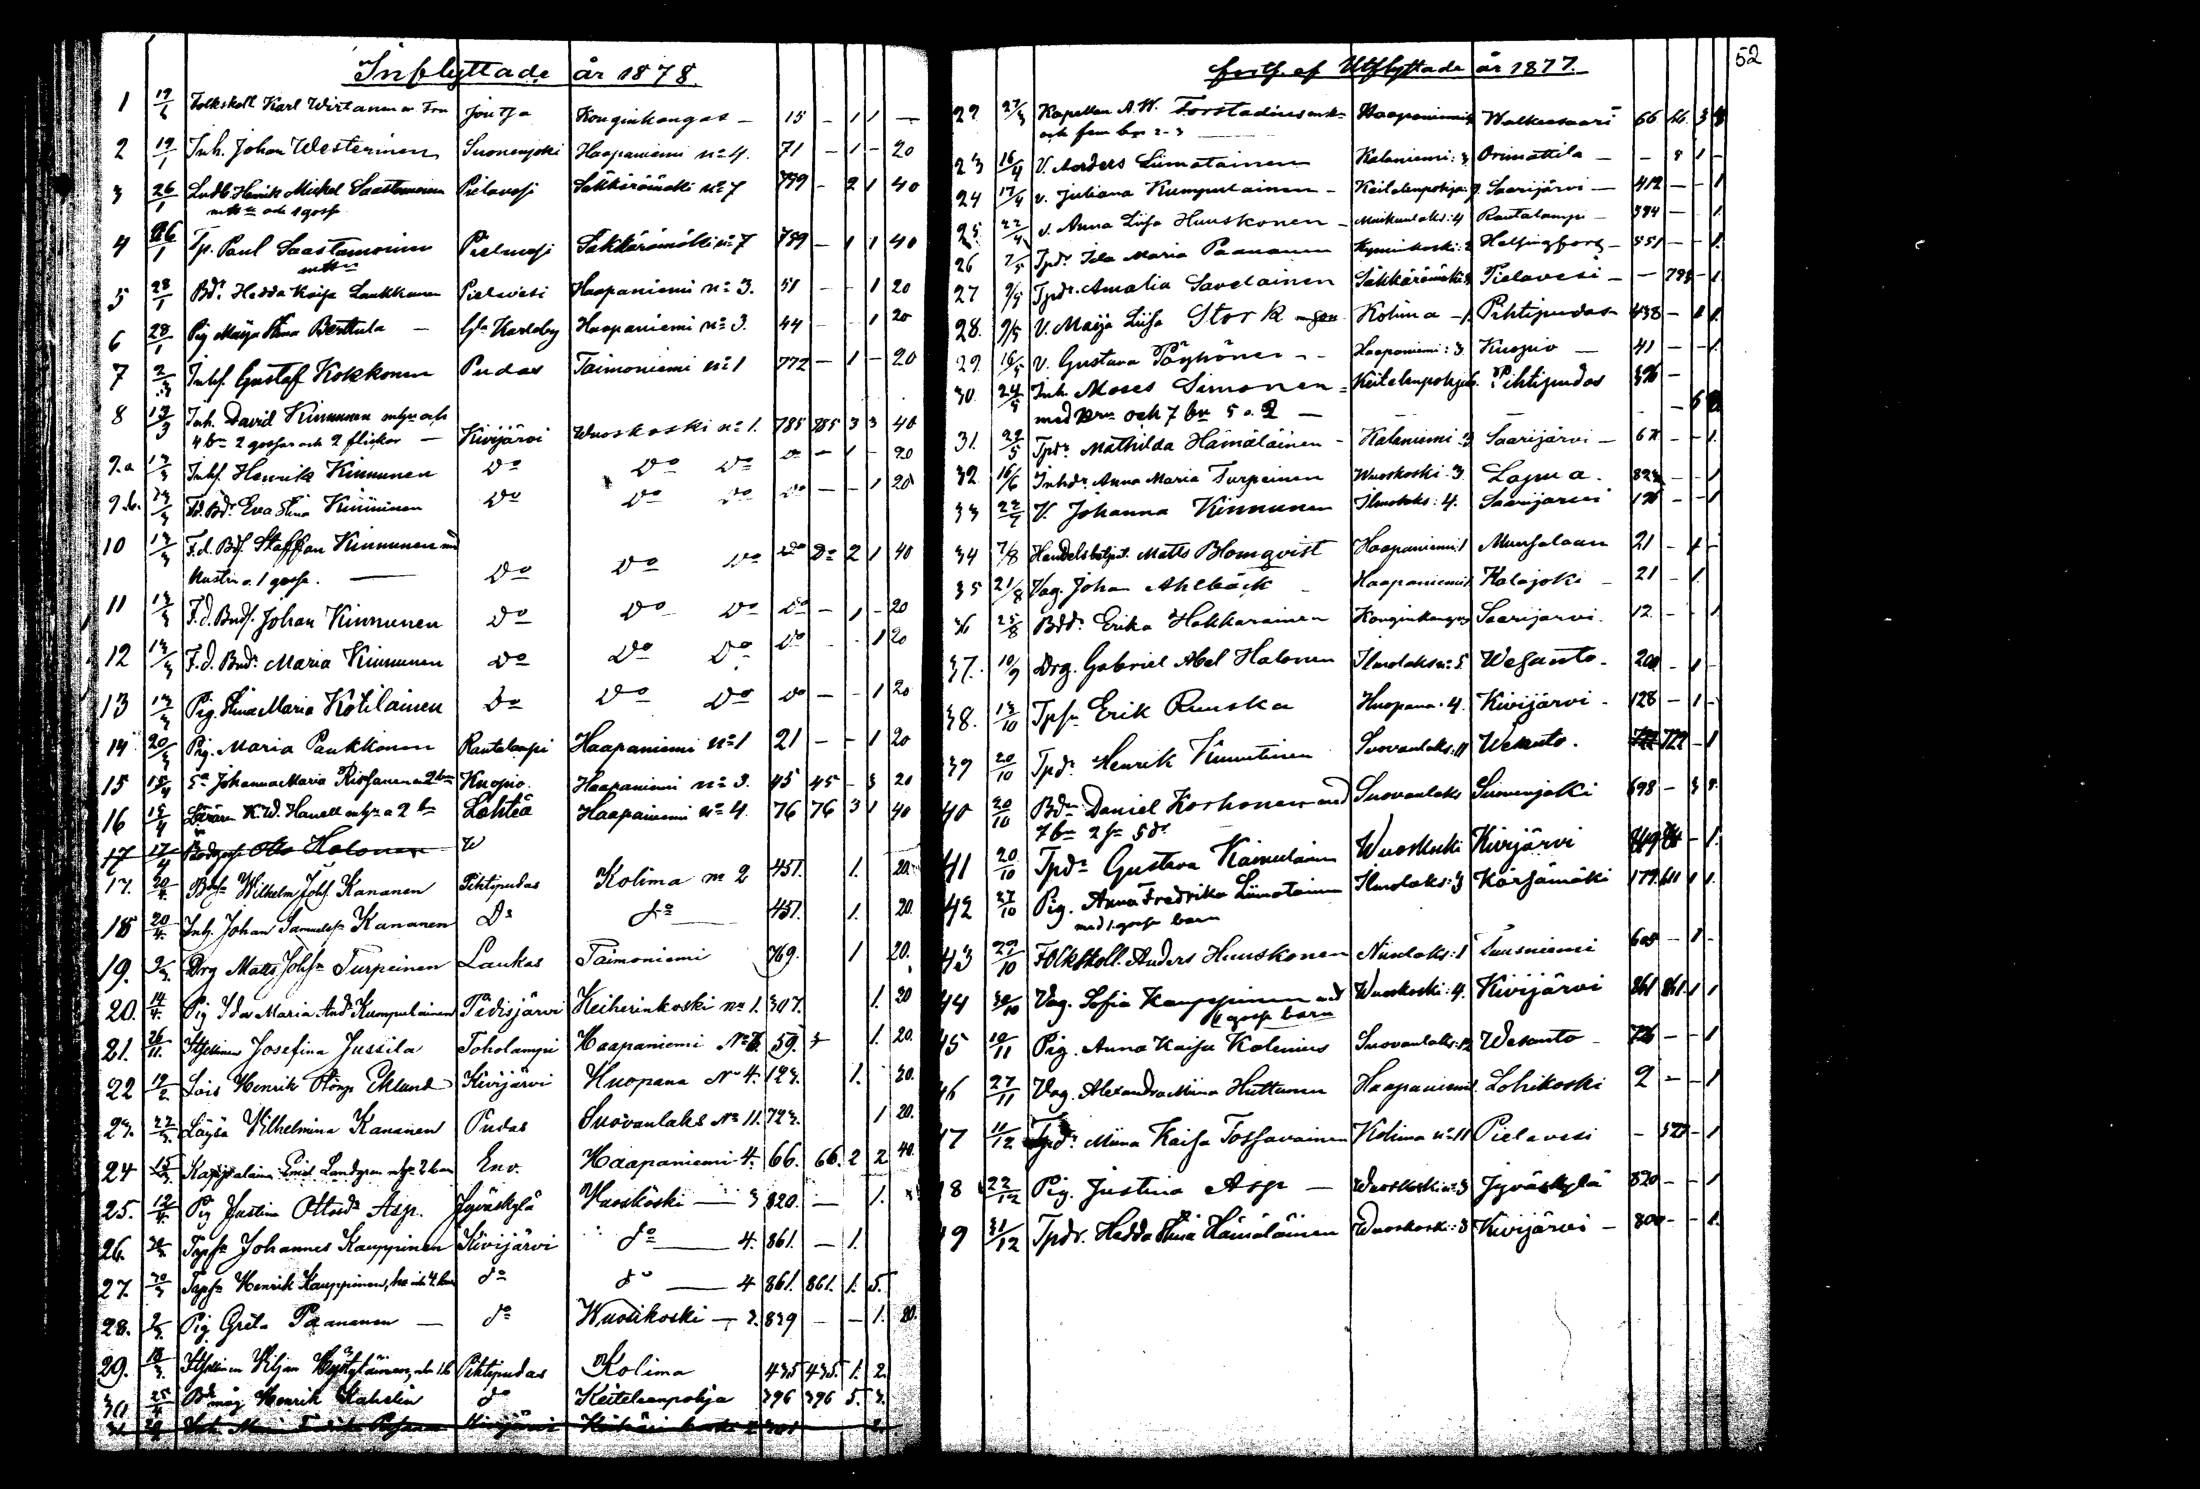 Inflyttade år 1878
1 19/1 Folkskoll Karl Wirtanen m. Fru Joutsa Konginkangas - 15 - 1 1 -
2 19/1 Inh. Johan Westerinen Suonenjoki Haapaniemi No 4. 71 - 1 - 20
3 26/1 Henrik Mickel Saastamoinen Pielavesi Säkkärämäki No 7 799 - 2 1 40
och 1 goss
4 26/1 Tp. Paul Saastamoinen Pielavesi Säkkärämäki No 7 799 - 1 1 40
5 28/1 Bdr. Hedda Kaisa Laukkanen Pielavesi Haapaniemi No 3. 51 - - 1 20
6 28/1 Pig Maija Stina Berttula - Gla Karleby Haapaniemi No 3. 44 - - 1 20
7 2/3 Inhs. Gustaf Kokkonen Pudas Taimoniemi No 1 772 - 1 - 20
8 13/3 Inh. David Kinnunen m hu och
4 bn 2 gossar och 2 flickor - Kivijärvi Wuoskoski No 1. 785 785 3 3 40
9.a 13/3 Inhs. Henrik Kinnunen Do Do Do Do - 1 - 20
9.b. 13/3 F.d. Bdr. Eva Stina Kinnunen Do Do Do Do - - 1 20
10 13/3 F.d. Bds. Staffan Kinnunen md
hustru o. 1 gosse. - Do Do Do Do Do 2 1 40
11 13/3 F.d. Bnds. Johan Kinnunen Do Do Do Do - 1 - 20
12 13/3 F.d. Bndr. Maria Kinnunen Do Do Do Do 1 20
13 13/3 Pig. Stina Maria Kotilainen Do Do Do Do - - 1 20
14 20/3 Pig. Maria Paukkonen Rautalampi Haapaniemi No 1 21 - - 1 20
15 15/4 Johanna Maria Rissanen m 2 bn Kuopio. Haapaniemi No 3. 45 45 - 3 20
16 15/4 K. W. Hanell m hu o 2 bn Lohteå Haapaniemi No 4. 76 76 3 1 40
17 17/4 Otto Halonen W
17. 20/4. Wilhelm Johs. Kananen Pihtipudas Kolima No 2 457. 1. 20.
18 20/4. Inh. Johan Samuelss. Kananen Do do 457. 1. 20.
19. Drg Matts Johsn Turpeinen Laukas Taimoniemi 769. 1 20.
20. 14/4. Pig Ida Maria And. Kumpulainen Pidisjärvi Keiherinkoski No 1. 307. 1. 20
21. 26/11. Josefina Jussila Toholampi Haapaniemi 59. 1. 20.
22 19/2 Henrik Eklund Kivijärvi Huopana No 4. 123. 1. 20.
23. Wilhelmina Kananen Pudas Suovanlaks No 11. 723. 1 20.
24 Kappalainen Emil Landgren 2 barn Eno. Haapaniemi 4. 66. 66. 2 2 40.
25. 12/4. Pig Justina Ottosdr Asp. Jyväskylä Wuoskoski - 3 820. - 1.
26. Tpsn Johannes Kauppinen Kivijärvi do - 4. 861. - 1.
27. 30/3 Tpsn Henrik Kauppinen, do do - 4 861. 861. 1. 5.
28. Pig Greta Paananen - do Wuoskoski - 2. 839 - - 1. 20.
29. 18/3. Pihtipudas Kolima 435 435. 1. 2.
30 25/4 måg Henrik Kahelin do Keiteleenpohja 396 396 5. 3.
52
fortf. af Utflyttade år 1877.
22 27/3 Kapellan A. W. Forstadius Haapaniemi Walkeasaari 66 66 3
och fem bn 2-3
23 16/4 V. Anders Liimatainen Kalaniemi: 3 Orimattila - - 1 -
24 17/4 v. Juliana Kumpulainen - Keitelenpohja 9. Saarijärvi - 412 - - 1
25. 22/4 v. Anna Lisa Huuskonen - Muikunlaks: 4 Rautalampi - 394 - 1.
26 7/5 Tpdr. Ida Maria Paananen Kyminkoski: 2 Helsingfors - 351 - - 1.
27 9/5 Tpdr. Amalia Savolainen Säkkärämäki Pielavesi - - 798 - 1
28. 9/5 V. Maija Lisa Stork Kolima - 1. Pihtipudas 438 - 1 1.
29. 16/5 V. Gustava Pöyhönen - - Haapaniemi: 3 Kuopio - 41 - - 1.
30. 24/5 Inh. Moses Simonen - Keitelenpohja 6. Pihtipudas 396 -
med hru och 7 bn 5 o. 2 - - 6
31. 29/5 Tpdr. Mathilda Hämäläinen - Kalaniemi: 3 Saarijärvi - - - 1.
32 16/6 Inhdr. Anna Maria Turpeinen Wuoskoski: 3 Lapua. - - 1
33 V. Johanna Kinnunen Ilmolaks: 4. Saarijärvi - - 1
34 7/8 Handelsbetjent. Matts Blomqvist Haapaniemi 1 Munsalaan 21 - 1 -
35 21/8 Vag. Johan Ahlbäck - Haapaniemi 1. Kalajoki - 21 - 1.
36 25/8 Bddr. Erika Hakkarainen Konginkangas Saarijärvi. 12 - - 1
37. 10/9 Drg. Gabriel Abel Halonen Ilmolaks No 5 Wesanto. 200 - 1 -
38. 13/10 Tpsn Erik Ruuska Huopana. 4. Kivijärvi - 128 - 1 -
39 20/10 Tpdr. Henrik Suovanlaks: 11 Wesanto. 722 722 - 1
40 20/10 Bdn Daniel Korhonen md Suovanlaks Suonenjoki 698 - 3
7 bn 2 sr 5 dr
41 20/10 Tpdr Gustava Kämäläinen Wuoskoski Kivijärvi - 1.
42 27/10 Pig. Anna Fredrika Liimatainen Ilmolaks: 3 Kärsämäki 1 1.
med 1. gosse barn
43 29/10 Folkskoll. Anders Huuskonen Niinilaks: 1 Tuusniemi - 1 -
44 30/10 Vag. Sofia Kauppinen md Wuoskoski: 4. Kivijärvi 861 861. 1 1
gosse barn
45 10/11 Pig. Anna Kaisa Suovanlaks: 12 Wesanto - 726 - - 1
46 27/11 Vag. Alexandra Miina Huttunen Haapaniemi Lohikoski 2 - - 1
47 11/12 Tpdr. Miina Kaisa Tossavainen Kolima No 11 Pielavesi - 527 - 1
48 22/12 Pig. Justina Asp - Wuoskoski: 3 Jyväskylä 820 - - 1
49 31/12 Tpdr. Hedda Stina Hämäläinen Wuoskoski: 3 Kivijärvi - - - 1.